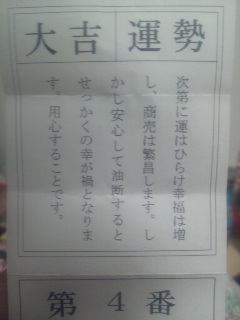 大吉 運勢
次第に運はひらけ幸福は増
し、商売は繁昌します。し
かし安心して油断すると
せっかくの幸が禍となりま
す。用心することです。
第4番